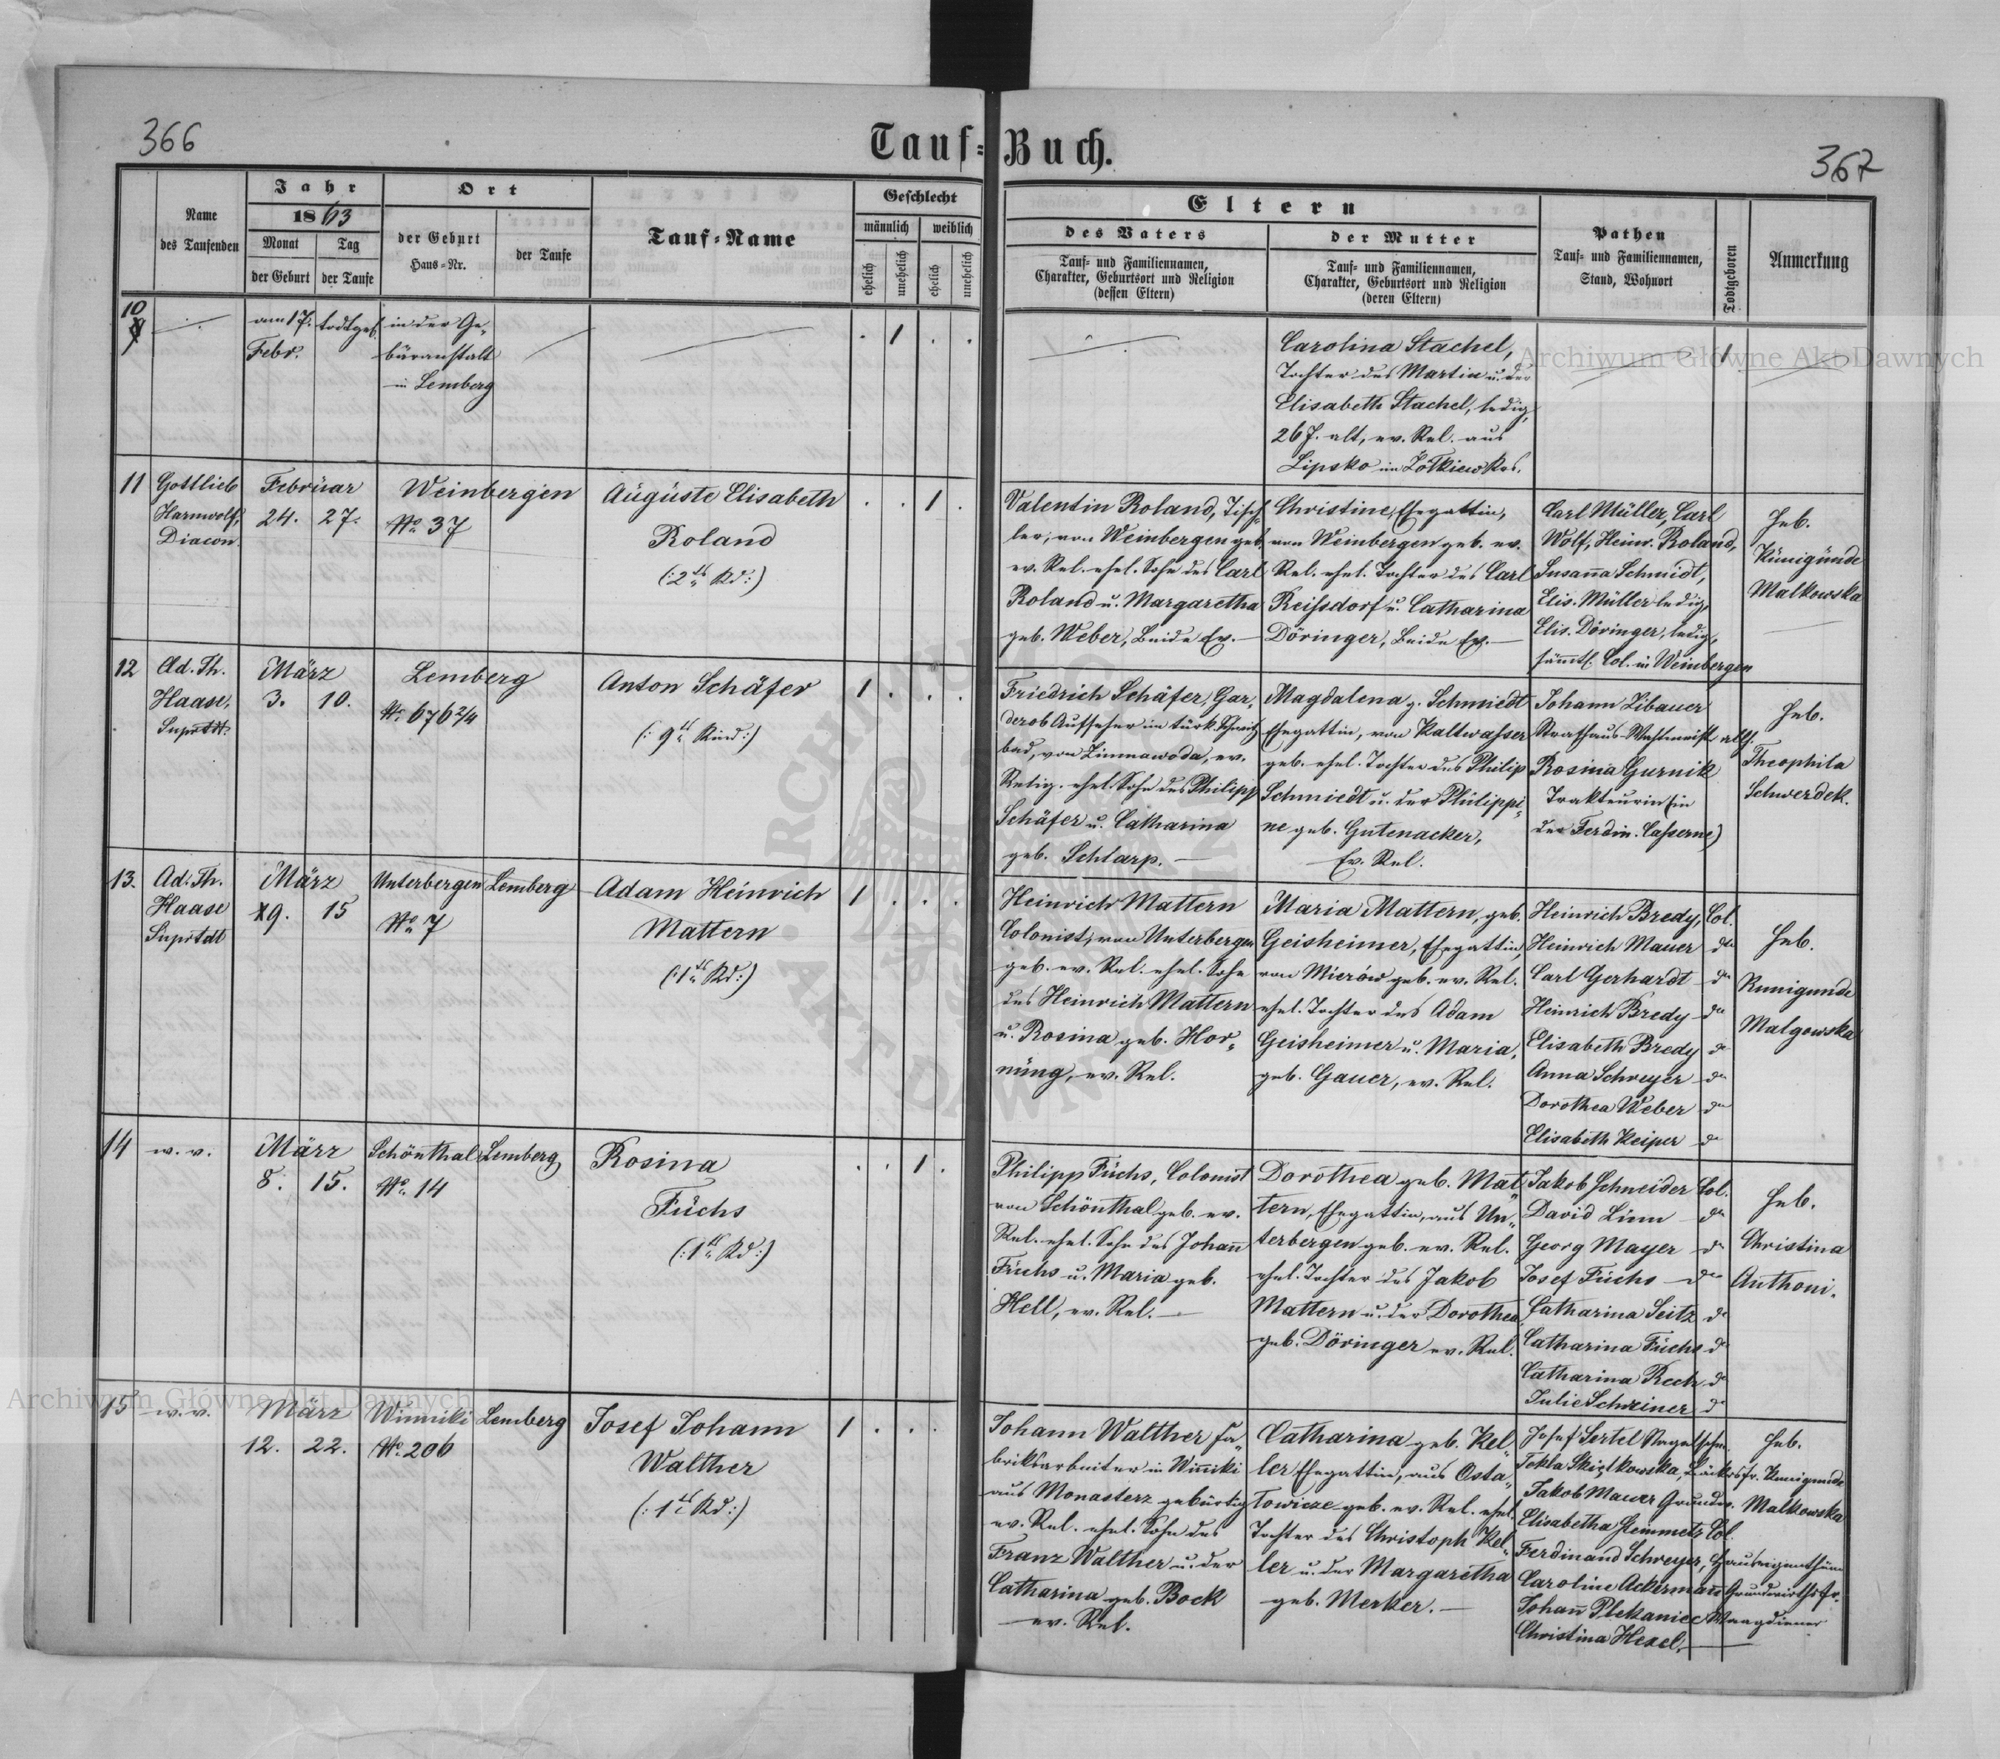 366
Tauf-Buch.
367
Name
des Taufenden
Jahr
1863
Monat
Tag
der Geburt
der Taufe
Ort
der Geburt
Haus-Nr.
der Taufe
Tauf-Name
Geschlecht
männlich
weiblich
ehelich
unehelich
ehelich
unehelich
Eltern
des Vaters
Tauf- und Familiennamen,
Charakter, Geburtsort und Religion
(dessen Eltern)
der Mutter
Tauf- und Familiennamen,
Charakter, Geburtsort und Religion
(deren Eltern)
Pathen
Tauf- und Familiennamen,
Stand, Wohnort
Todtgeboren
Anmerkung
10
am 17.
Febr.
todtgeb.
in der Ge-
bäranstalt
in Lemberg
1
Carolina Stachel,
Tochter des Martin u. der
Elisabeth Stachel, ledig,
26 J. alt, ev. Rel. aus
Lipsko im Żółkiew Krs.
1
11
Gottlieb
Harnwolf,
Diacon.
Februar
24. 27.
Weinbergen
No 37
Auguste Elisabeth
Roland
(:2tes Kd:)
1
Valentin Roland, Tisch-
ler, von Weinbergen geb.
ev. Rel. ehel. Sohn des Carl
Roland u. Margaretha
geb. Weber, Beide Ev.
Christine, Ehegattin,
von Weinbergen geb. ev.
Rel. ehel. Tochter des Carl
Reissdorf u. Catharina
Döringer, Beide Ev.
Carl Müller, Carl
Wolf, Heinr. Roland,
Susanna Schmidt,
Elis. Müller ledig,
Elis. Döringer, ledig,
sämtl. Col. in Weinbergen
Heb.
Kunigunde
Malkowska
12
Ad. Th.
Haase,
Suprtdt.
März
3. 10.
Lemberg
No. 676 2/4
Anton Schäfer
(: 9tes Kind:)
1
Friedrich Schäfer, Gar-
derob Aufseher im türk. Schwitz
bad, von Zimnawoda, ev.
Relig. ehel. Sohn des Philipp
Schäfer u. Catharina
geb. Schlarp.
Magdalena g. Schmiedt
Ehegattin, von Kaltwasser
geb. ehel. Tochter des Philip
Schmiedt u. der Philippi-
ne geb. Gutenacker,
Ev. Rel.
Johann Libauer
Strafhaus-Wachtmeist. allh.
Rosina Gurnik
Trakteurin (in
der Ferdin. Casserne)
Heb.
Theophila
Schwerdek.
13.
Ad. Th.
Haase
Suprtdt
März
9. 15
Unterbergen
No 7
Lemberg
Adam Heinrich
Mattern
(:1tes Kd:)
1
Heinrich Mattern
Colonist, von Unterbergen
geb. ev. Rel. ehel. Sohn
des Heinrich Mattern
u. Rosina geb. Hor-
nung, ev. Rel.
Maria Mattern, geb.
Geisheimer, Ehegattin,
von Mierów geb. ev. Rel.
ehel. Tochter des Adam
Geisheimer u. Maria,
geb. Gauer, ev. Rel.
Heinrich Bredy, Col.
Heinrich Mauer do
Carl Gerhardt do
Heinrich Bredy do
Elisabeth Bredy do
Anna Schreyer do
Dorothea Weber do
Elisabeth Keiper do
Heb.
Kunigunde
Malgowska
14
w. v.
März
8. 15.
Schönthal
No. 14
Lemberg
Rosina
Fuchs
(:1tes Kd:)
1
Philipp Fuchs, Colonist
von Schönthal geb. ev.
Rel. ehel. Sohn des Johann
Fuchs u. Maria geb.
Hell, ev. Rel.
Dorothea geb. Mat-
tern, Ehegattin, aus Un-
terbergen geb. ev. Rel.
ehel. Tochter des Jakob
Mattern u. der Dorothea
geb. Döringer ev. Rel.
Jakob Schneider Col.
David Linn do
Georg Mayer do
Josef Fuchs do
Catharina Seitz do
Catharina Fuchs do
Catharina Rech do
Julie Schreiner do
Heb.
Christina
Anthoni.
15
w. v.
März
12. 22.
Winniki
No. 206
Lemberg
Josef Johann
Walther
(: 1tes Kd:)
1
Johann Walther Fa-
briksarbeiter in Winniki
aus Monasterz gebürtig
ev. Rel. ehel. Sohn des
Franz Walther u. der
Catharina geb. Bock
ev. Rel.
Catharina geb. Kel-
ler Ehegattin, aus Osta-
lowicze geb. ev. Rel. ehel.
Tochter des Christoph Kel-
ler u. der Margaretha
geb. Merker.
Josef Sertel
Tekla Skiętkowska, Bäckersfr.
Jakob Mauer Grundw.
Elisabetha Heimmetz Col.
Ferdinand Schreyer, Hauseigenthüm
Caroline Ackermann Grundwirthsfr.
Johann Plekaniec Waagdiener
Christina Hexel,
Heb.
Kunigunde
Malkowska
Archiwum Główne Akt Dawnych
Archiwum Główne Akt Dawnych